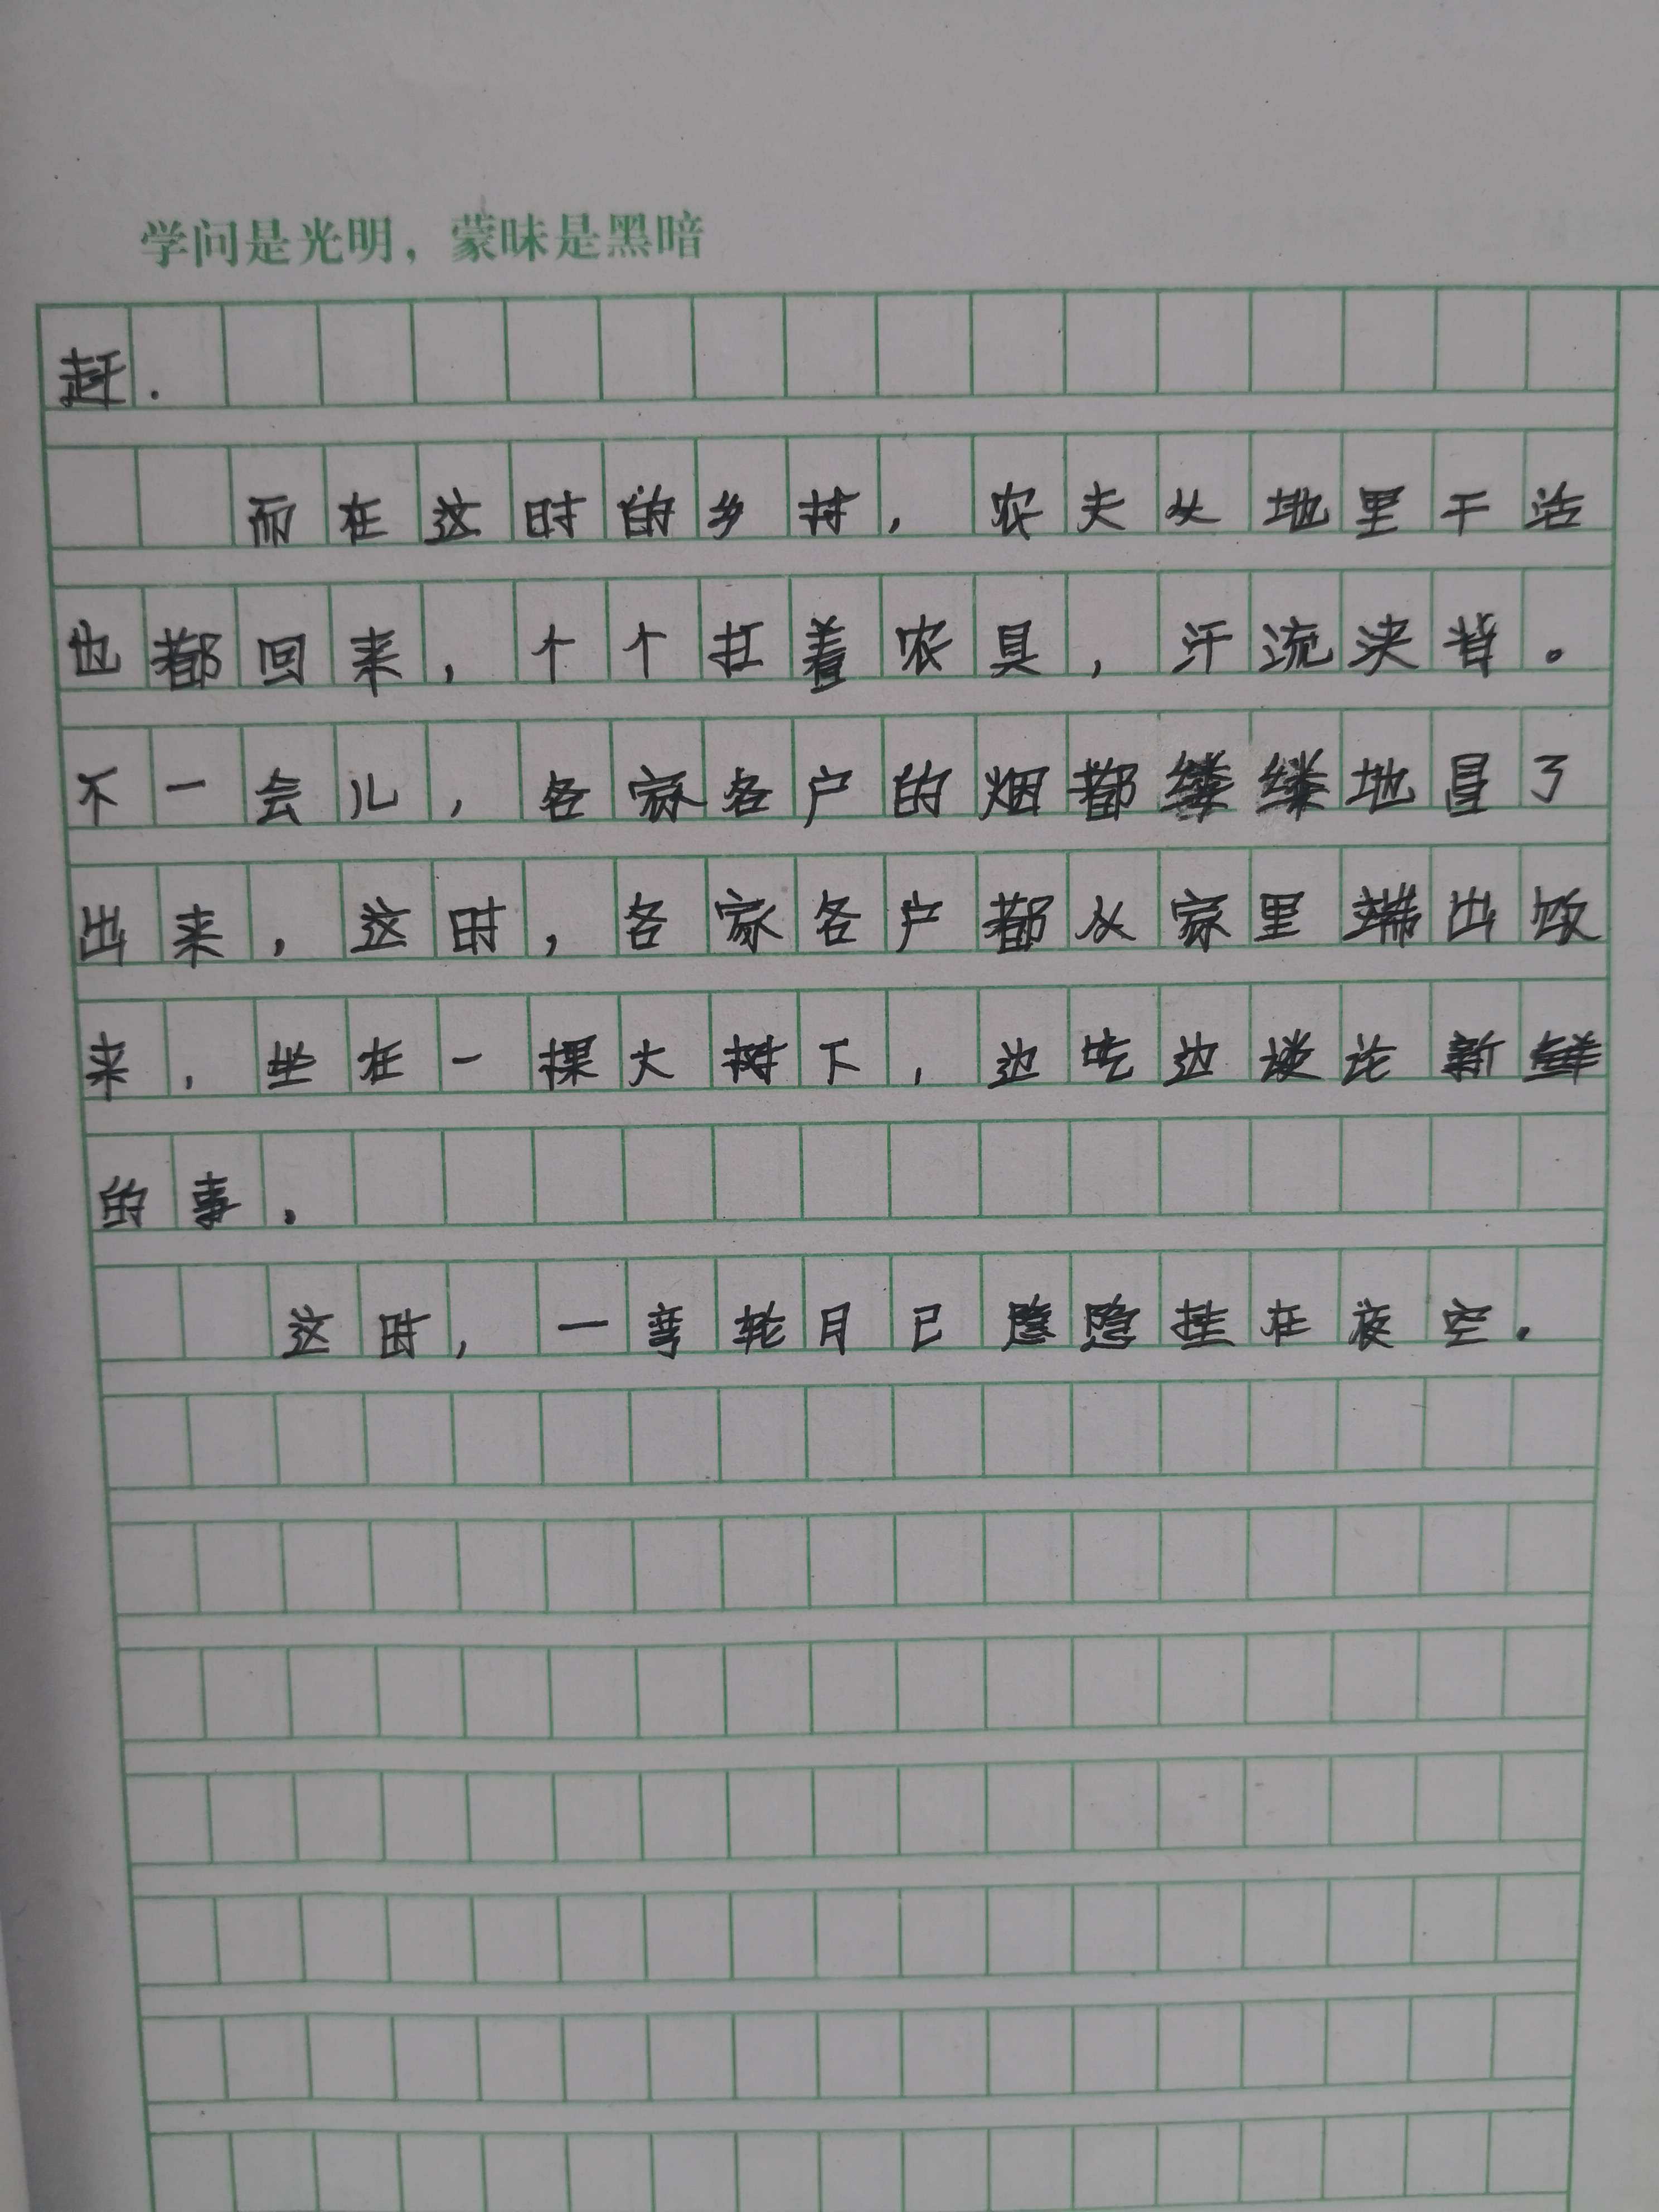 学问是光明，蒙昧是黑暗
赶.
而在这时的乡村，农夫从地里干活
也都回来，个个扛着农具，汗流浃背。
不一会儿，各家各户的烟都缕缕地冒了
出来，这时，各家各户都从家里端出饭
来，坐在一棵大树下，边吃边谈论新鲜
的事.
这时，一弯轮月已隐隐挂在夜空.